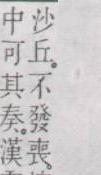 沙丘。不發喪。
中可其奏。漢